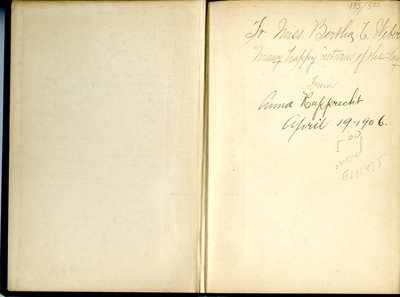 To Miss Bertha C. Weber
"Many happy returns of the day"
From
Anna Rupprecht
April 19-1906.
5 00